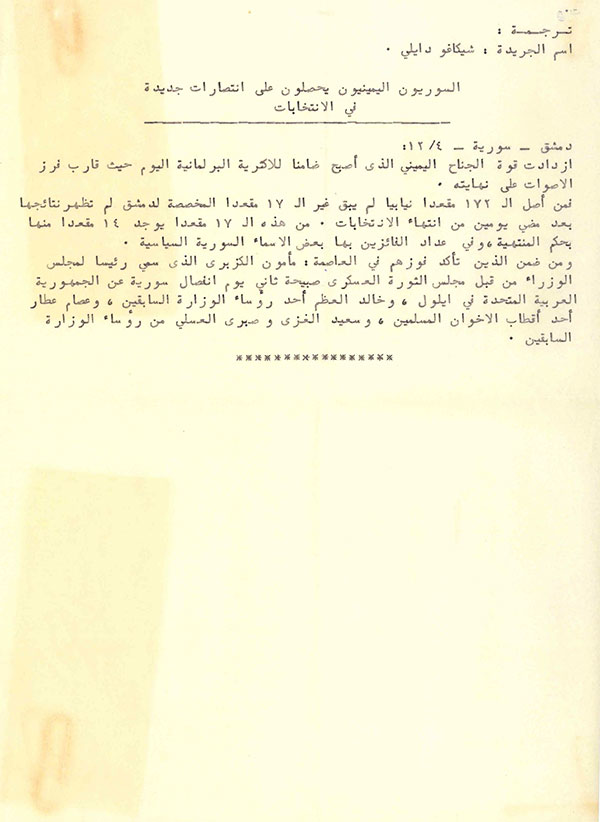 تـرجـمـة :
اسم الجريدة : شيكاغو دايلي .
السوريون اليمينيون يحصلون على انتصارات جديدة
في الانتخابات
دمشق ـ سورية ـ ١٢/٤:
ازدادت قوة الجناح اليميني الذى أصبح ضامنا للاكثرية البرلمانية اليوم حيث قارب فرز
الاصوات على نهايته .
فمن أصل الـ ١٧٢ مقعدا نيابيا لم يبق غير الـ ١٧ مقعدا المخصصة لدمشق لم تظهر نتائجها
بعد مضي يومين من انتهاء الانتخابات . من هذه الـ ١٧ مقعدا يوجد ١٤ مقعدا منها
بحكم المنتهية ، وفي عداد الفائزين بها بعض الاسماء السورية السياسية .
ومن ضمن الذين تأكد فوزهم في العاصمة : مأمون الكزبرى الذى سمي رئيسا لمجلس
الوزراء من قبل مجلس الثورة العسكرى صبيحة ثاني يوم انفصال سورية عن الجمهورية
العربية المتحدة في ايلول ، وخالد العظم أحد رؤساء الوزارة السابقين ، وعصام عطار
أحد أقطاب الاخوان المسلمين ، وسعيد الغزى و صبرى العسلي من رؤساء الوزارة
السابقين .
******************